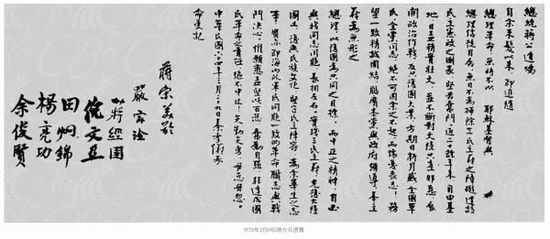 總統蔣公遺囑
自余束髮以來即追隨
總理革命無時不以耶穌基督與
總理信徒自居無日不為掃除三民主義之障礙建設
民主憲政之國家艱苦奮鬥近二十餘年來自由基
地日益精實壯大並不斷對大陸共產邪惡展
開政治作戰反共復國大業方期日新月盛全國軍
民全黨同志絕不可因余之不起而懷憂喪志務
望一致精誠團結服膺本黨與政府領導奉主
義為無形之
總理以復國為共同之目標而中正之精神自必
與我同志同胞長相左右實踐三民主義光復大陸
國土復興民族文化堅守民主陣容為余畢生之志
事實亦即海內外軍民同胞一致的革命職志與戰
鬥決心惟願愈益堅此百忍奮勵自強非達成國
民革命之責任絕不中止矢勤矢勇毋怠毋忽
民國六十四年三月二十九日秦孝儀承
命受記
蔣宋美齡
嚴家淦
蔣經國
倪文亞
田炯錦
楊亮功
余俊賢
1975年3月29日蔣介石遺囑